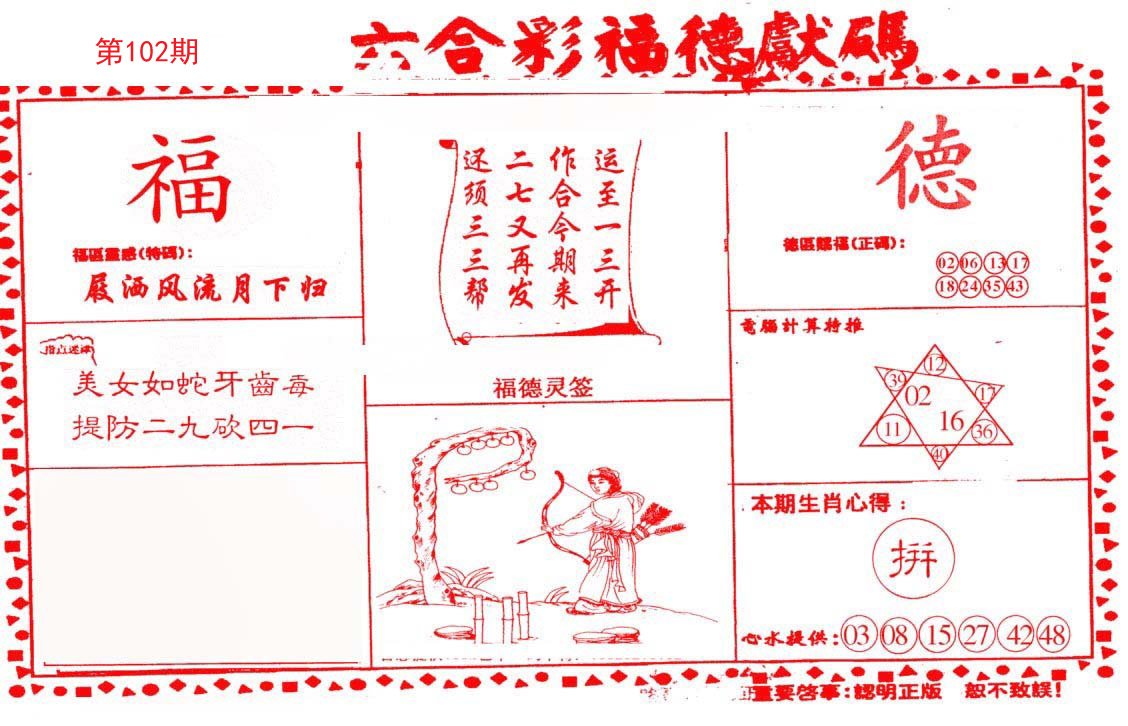 第102期
六合彩福德獻碼
福
福區靈感(特碼):
屐洒风流月下归
指点迷津
美女如蛇牙齒毒
提防二九砍四一
运至一三开
作合今期来
二七又再发
还须三三帮
福德灵签
德
德區賜福(正碼):
02 06 13 17
18 24 35 43
電腦計算特推
12
39 02 17
11 16 36
40
本期生肖心得:
拼
心水提供:03 08 15 27 42 48
重要啓事:認明正版 恕不致誤!